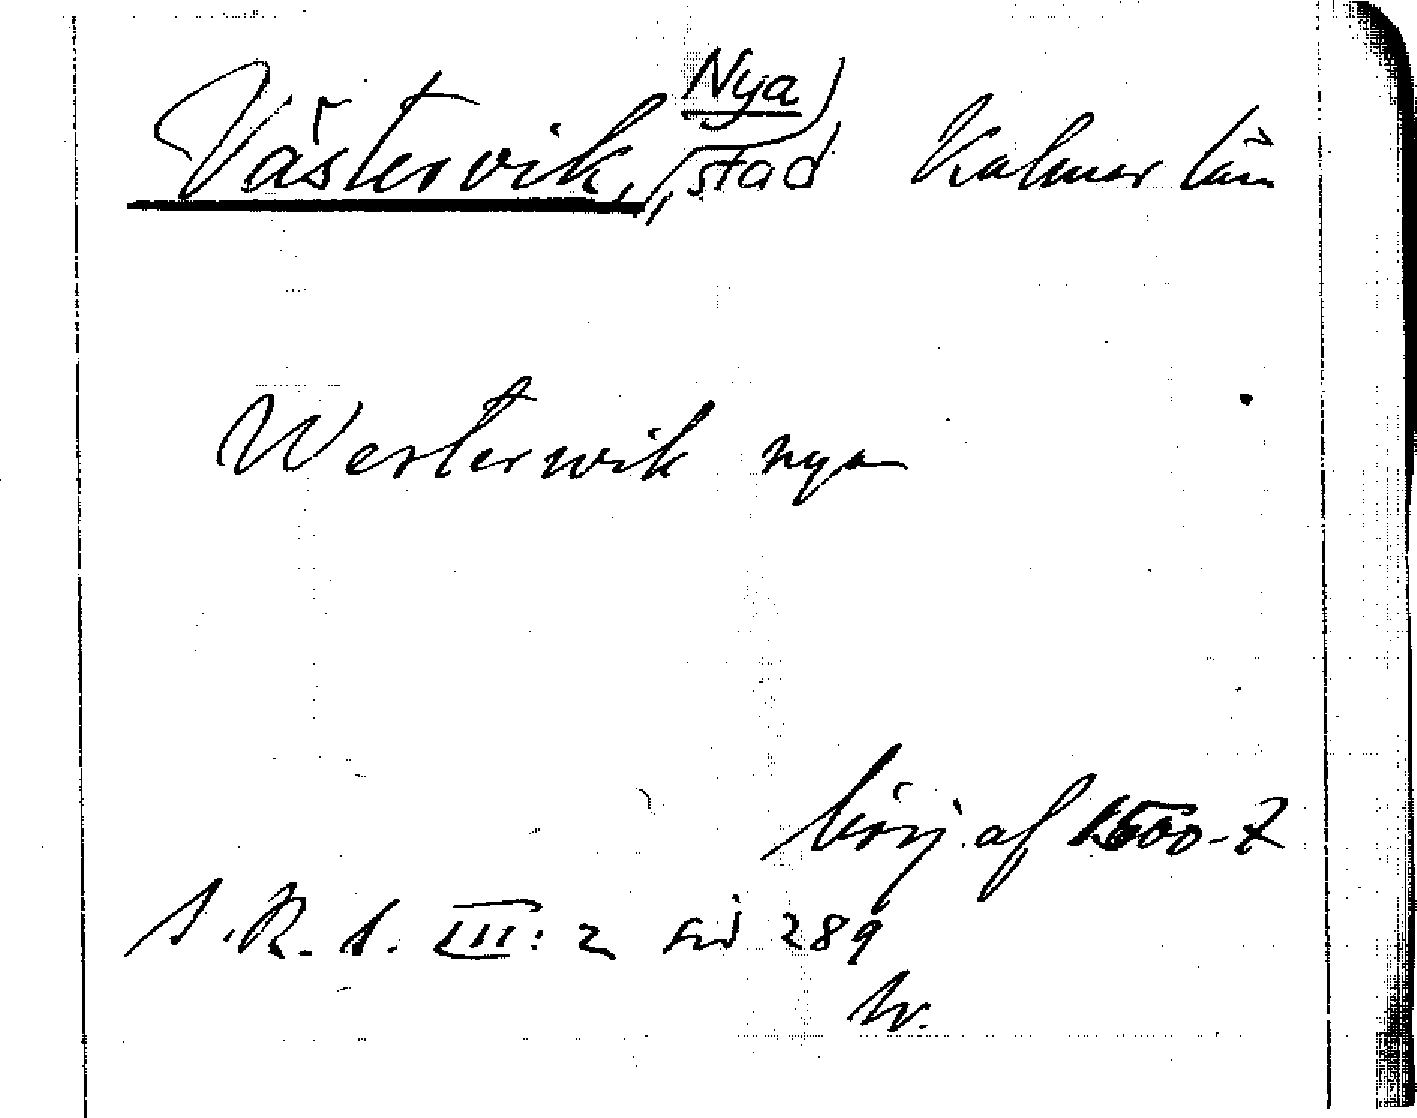 Västervik, Nya stad Kalmar län
Westerwik nya
börj. af 1500-t
S.R.S. III: 2 sid 289